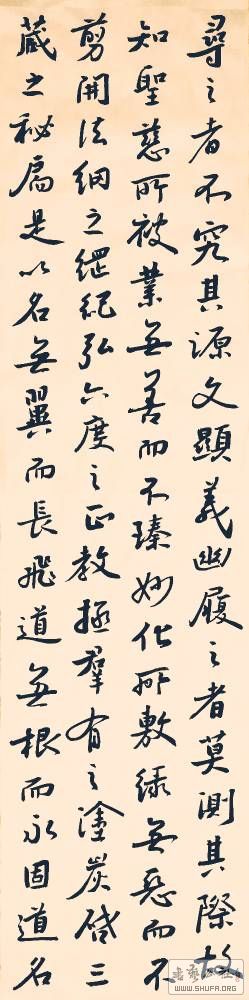 尋之者不究其源文顯義幽履之者莫測其際故
知聖慈所被業無善而不臻妙化所敷緣無惡而不
剪開法網之綱紀弘六度之正教拯群有之塗炭啓三
藏之秘扃是以名無翼而長飛道無根而永固道名
书法公社
WWW.SHUFA.ORG